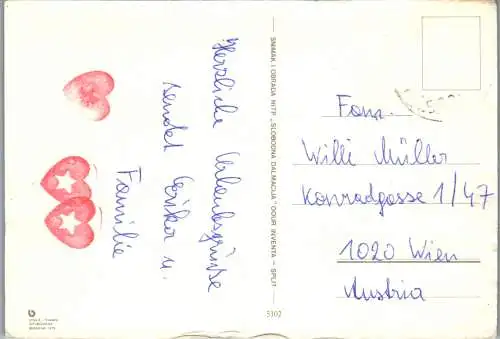 Herzliche Urlaubsgrüße
sendet Erika u.
Familie
SNIMAK I OBRADA NITP „SLOBODNA DALMACIJA" OOUR INVENTA – SPLIT
5302
Fam.
Willi Müller
Konradgasse 1/47
1020 Wien
Austria